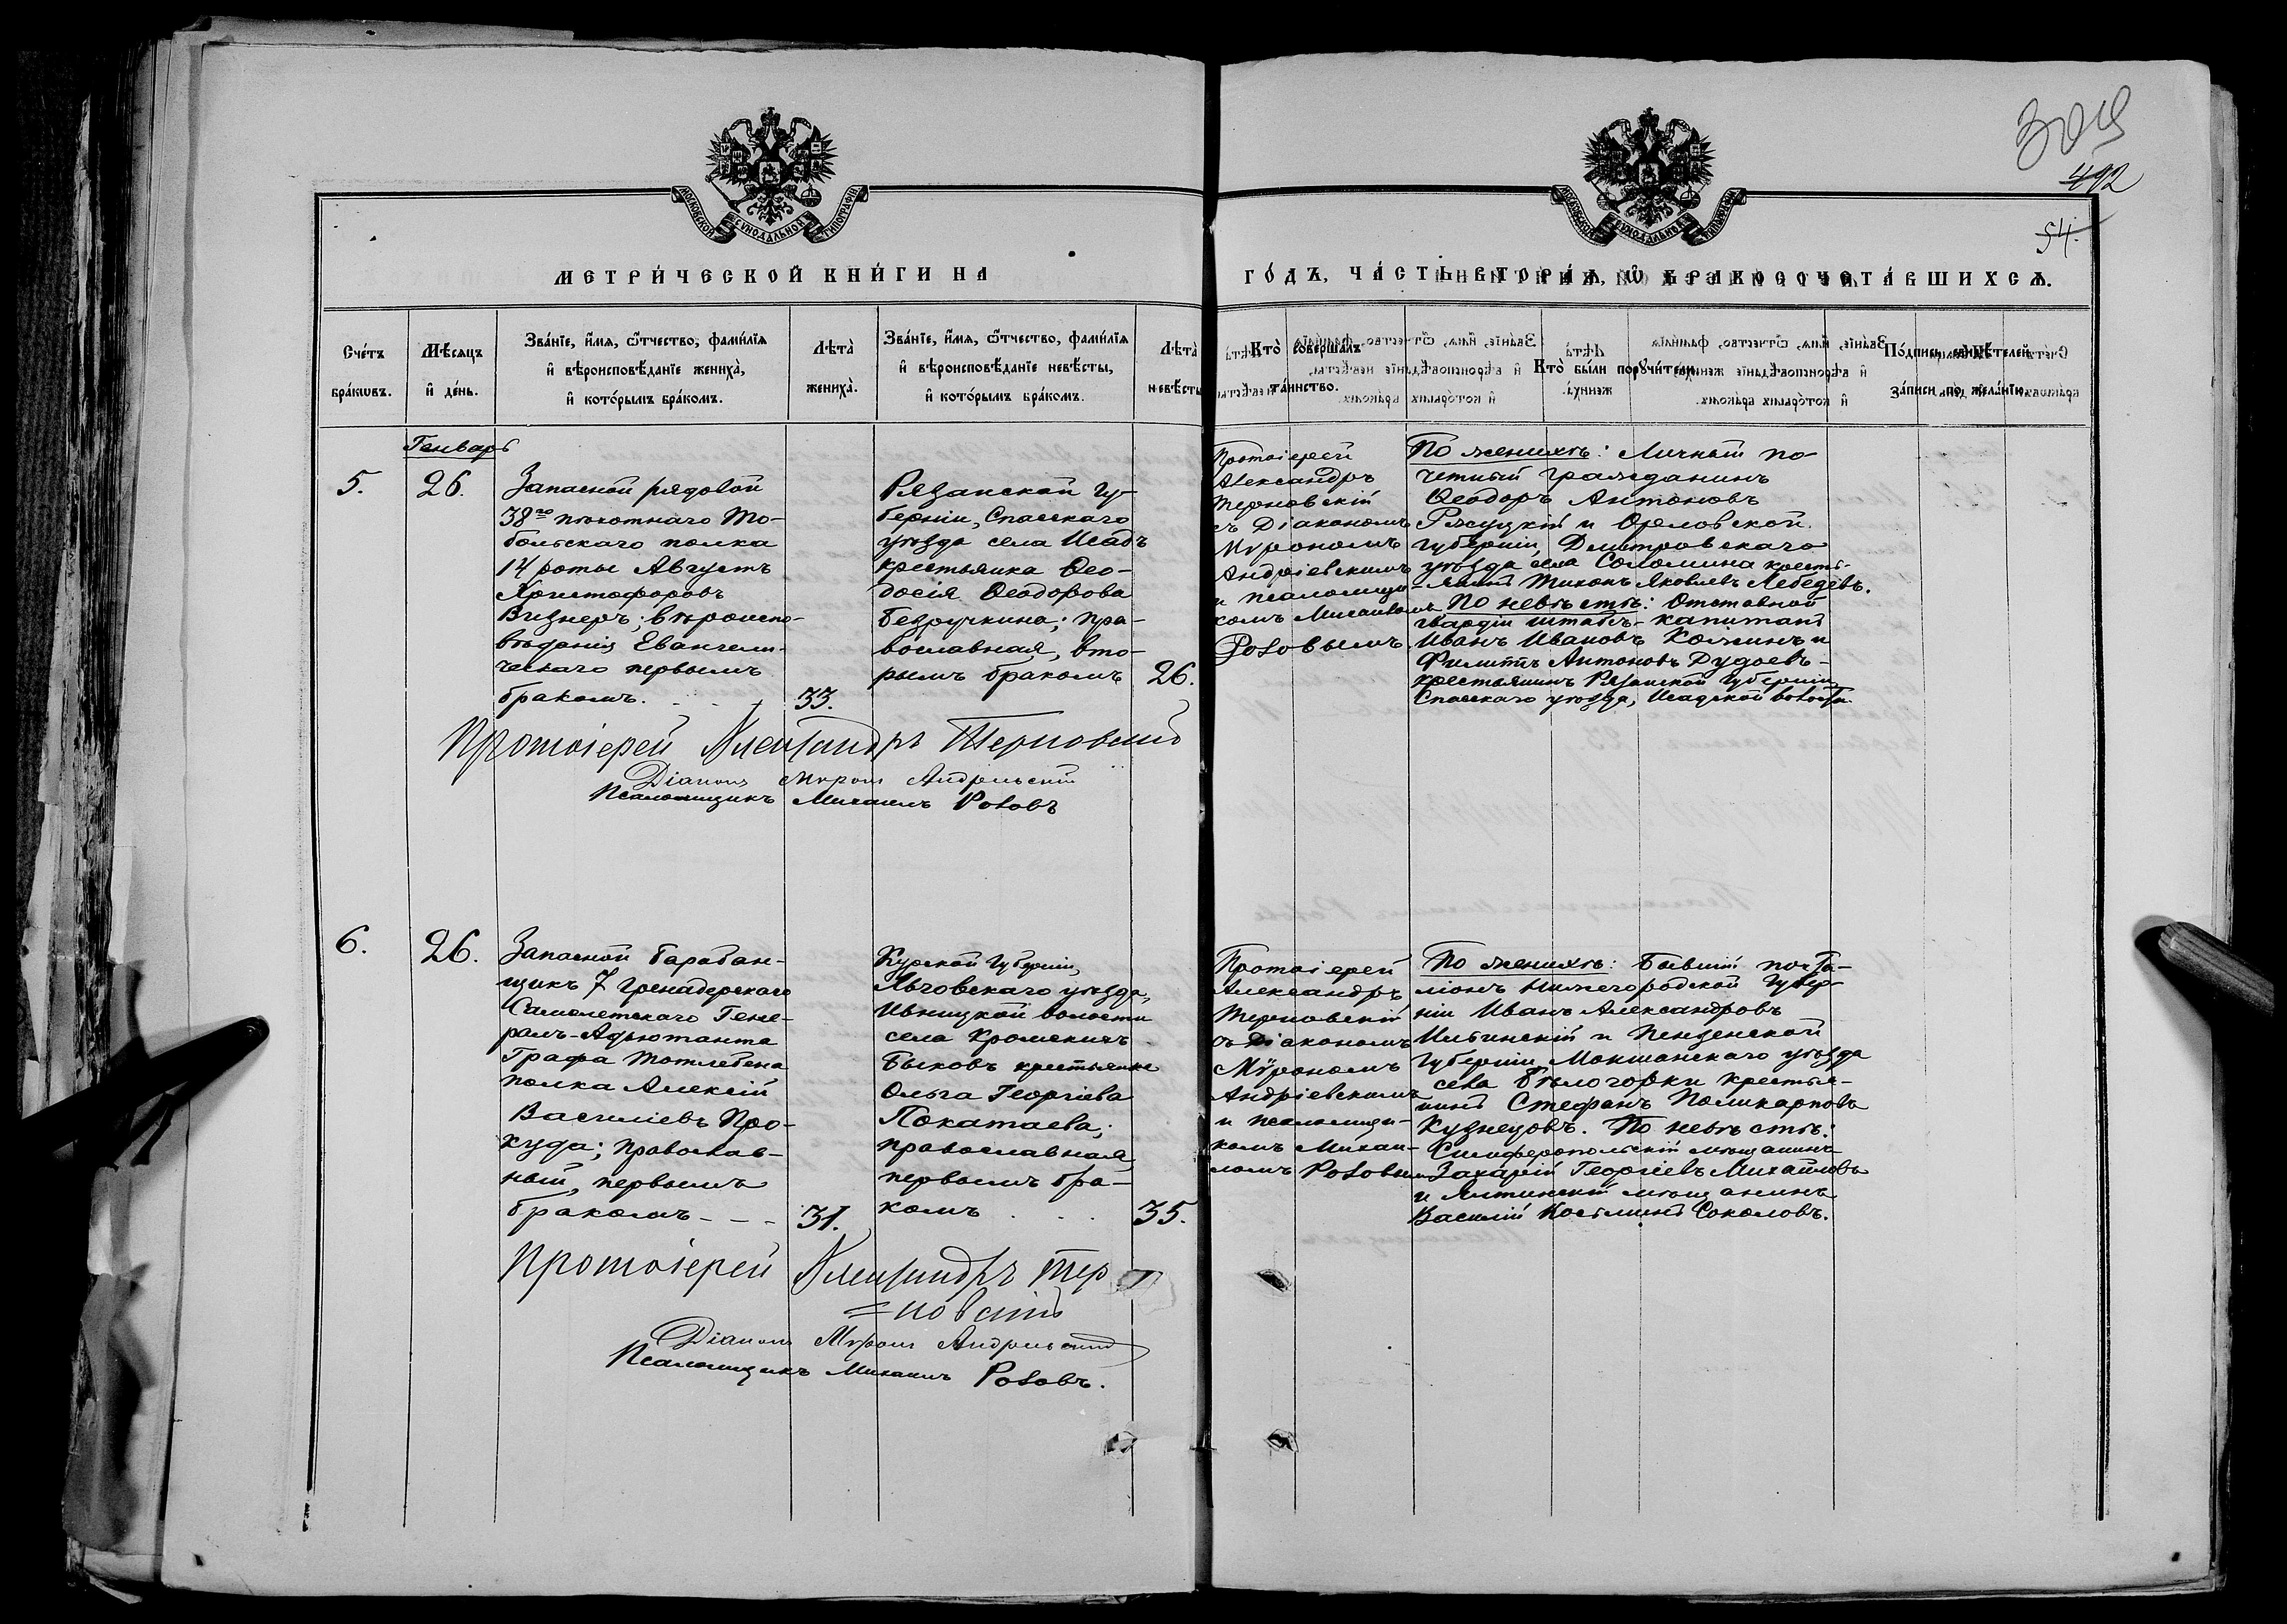 309
492
54.
МОСКОВСКОЙ СѴНОДАЛЬНОЙ ТИПОГРАФІИ
МОСКОВСКОЙ СѴНОДАЛЬНОЙ ТИПОГРАФІИ
МЕТРИ́ЧЕСКОЙ КНИ́ГИ НА
ГО́ДЪ, ЧА́СТЬ ВТОРА́Я, Ѡ БРАКОСОЧЕТА́ВШИХСѦ.
Сче́тъ
бра́кѡвъ.
Мѣ́сяцъ
и҆ де́нь.
Зва́нїе, и҆́мя, ѻ҆́тчество, фами́лїя
и҆ вѣроисповѣ́данїе жениха̀,
и҆ кото́рымъ бра́комъ.
Лѣта̀
жениха̀.
Зва́нїе, и҆́мя, ѻ҆́тчество, фами́лїя
и҆ вѣроисповѣ́данїе невѣ́сты,
и҆ кото́рымъ бра́комъ.
Лѣта̀
невѣ́сты
Кто̀ соверша́лъ
та́инство.
Кто̀ бы́ли порꙋчи́тели.
По́дпись свидѣ́телей
за́писи по жела́нїю.
Генварь
5.
26.
Запасной рядовой
38го пѣхотнаго То-
больскаго полка
14 роты Августъ
Христофоровъ
Визнеръ; вѣроиспо-
вѣданія Евангели-
ческаго первымъ
бракомъ.
33.
Рязанской Гу-
берніи, Спасскаго
уѣзда села Исадъ
крестьянка Ѳео-
досія Ѳеодорова
Безручкина; пра-
вославная, вто-
рымъ бракомъ
26.
Протоіерей
Александръ
Терновскій
съ Діакономъ
Мѵрономъ
Андріевскимъ
и псаломщи-
комъ Михаиломъ
Розовымъ.
По женихѣ: Личный по-
четный гражданинъ
Ѳеодоръ Антоновъ
и Орловской
губерніи, Дмитровскаго
уѣзда села Соломина кресть-
янинъ Тихонъ Яковлевъ Лебедевъ.
По невѣстѣ: Отставной
гвардіи штабсъ-капитанъ
Иванъ Ивановъ и
Филиппъ Антоновъ Дудоевъ-
крестьянинъ Рязанской Губерніи
Спасскаго уѣзда, Исадской волости.
Протоіерей Александръ Терновскій
Діаконъ Мѵронъ Андріевскій
Псаломщикъ Михаилъ Розовъ
6.
26.
Запасной барабан-
щикъ 7 Гренадерскаго
Самогетскаго Гене-
ралъ-Адьютанта
Графа Тотлебена
полка Алексій
Василіевъ Про-
куда; православ-
ный, первымъ
бракомъ - - -
31.
Курской Губерніи,
Льговскаго уѣзда,
Ивницкой волости
села
Быковъ крестьянка
Ольга Георгіева
Покатаева;
православная
первымъ бра-
комъ . . .
35.
Протоіерей
Александръ
Терновскій
съ Діакономъ
Мѵрономъ
Андріевскимъ
и псаломщи-
комъ Михаи-
ломъ Розовымъ
По женихѣ: Бывшій почта-
ліонъ Нижегородской Губер-
ніи Иванъ Александровъ
Ильинскій и Пензенской
Губерніи, Мокшанскаго уѣзда
села Бѣлогорки крестья-
нинъ Стефанъ Поликарповъ
Кузнецовъ. По невѣстѣ:
Симферопольскій мѣщанинъ
Захарій Георгіевъ Михайловъ
и Ялтинскій мѣщанинъ
Василій Косьминъ Соколовъ.
Протоіерей Александръ Тер
=новскій
Діаконъ Мѵронъ Андріевскій
Псаломщикъ Михаилъ Розовъ.